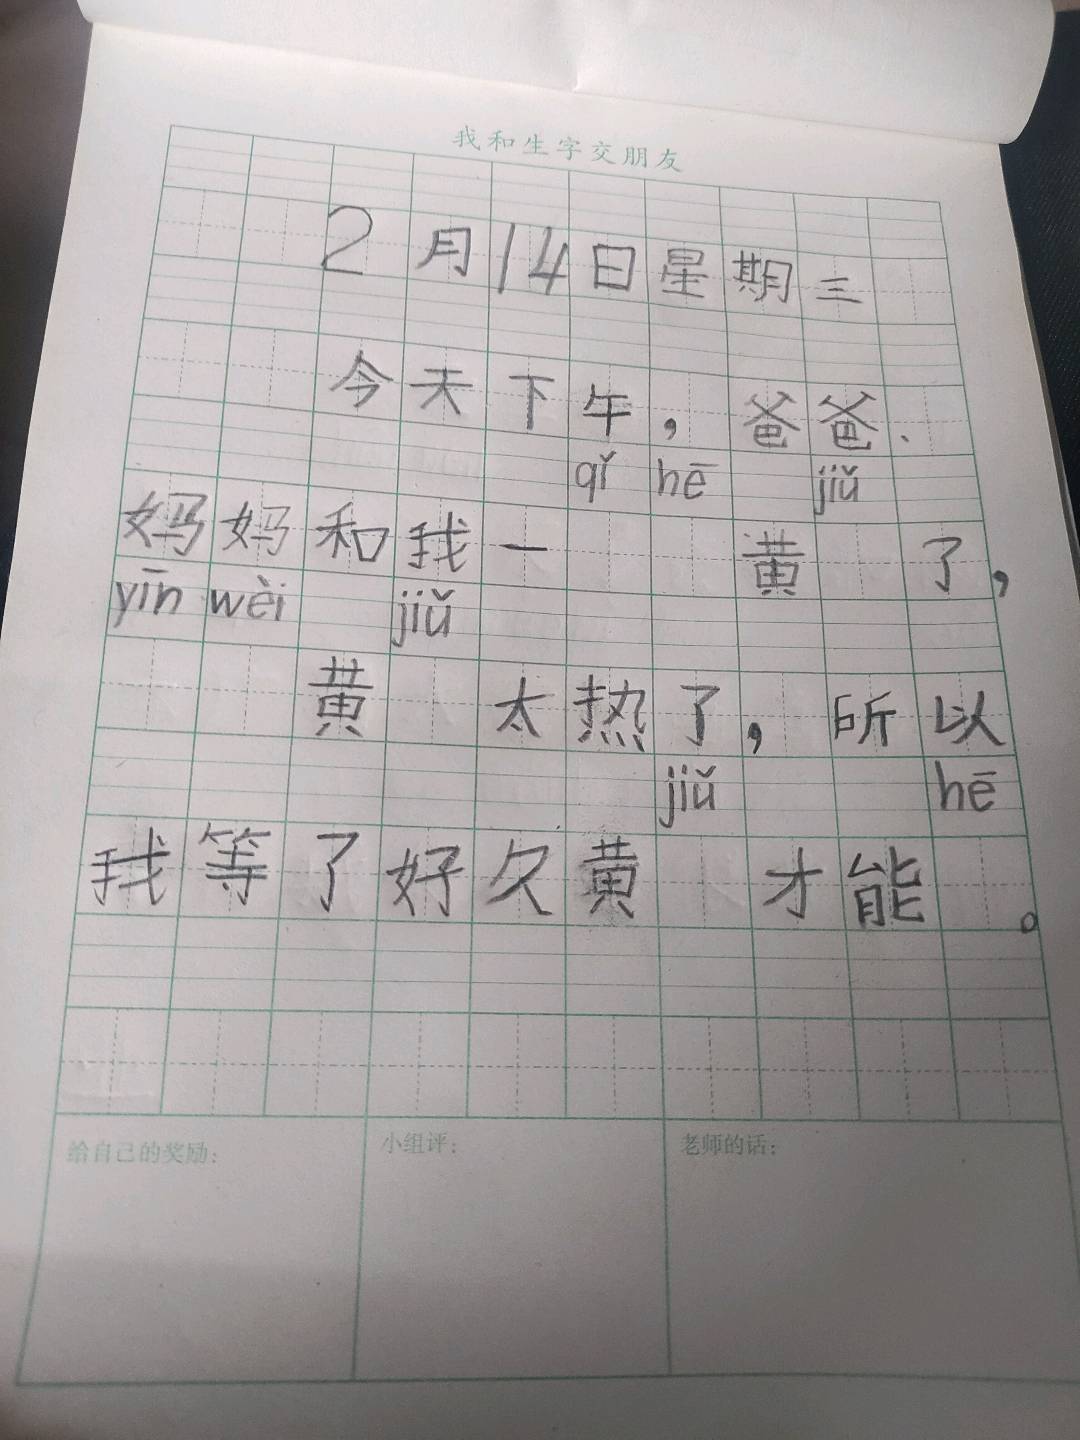 我和生字交朋友
2月14日星期三
今天下午，爸爸、
qǐ hē jiǔ
妈妈和我一 黄 了，
yīn wèi jiǔ
黄 太热了，所以
jiǔ hē
我等了好久黄 才能 。
给自己的奖励： 小组评： 老师的话：